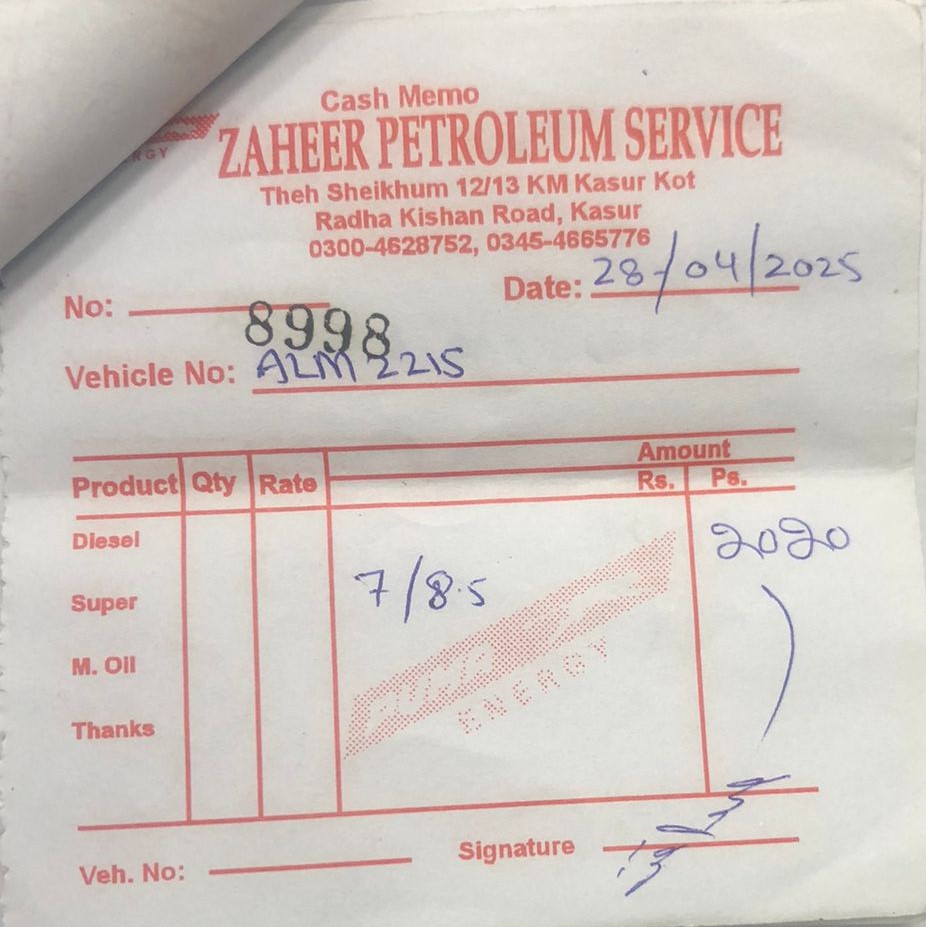 Cash Memo
RGY
ZAHEER PETROLEUM SERVICE
Theh Sheikhum 12/13 KM Kasur Kot
Radha Kishan Road, Kasur
0300-4628752, 0345-4665776
Date: 28/04/2025
No: 8998
Vehicle No: ALM 2215
Amount
Product Qty Rate Rs. Ps.
Diesel 2020
Super 7/8.5
M. Oil
Thanks
PUMA
ENERGY
Signature
Veh. No: